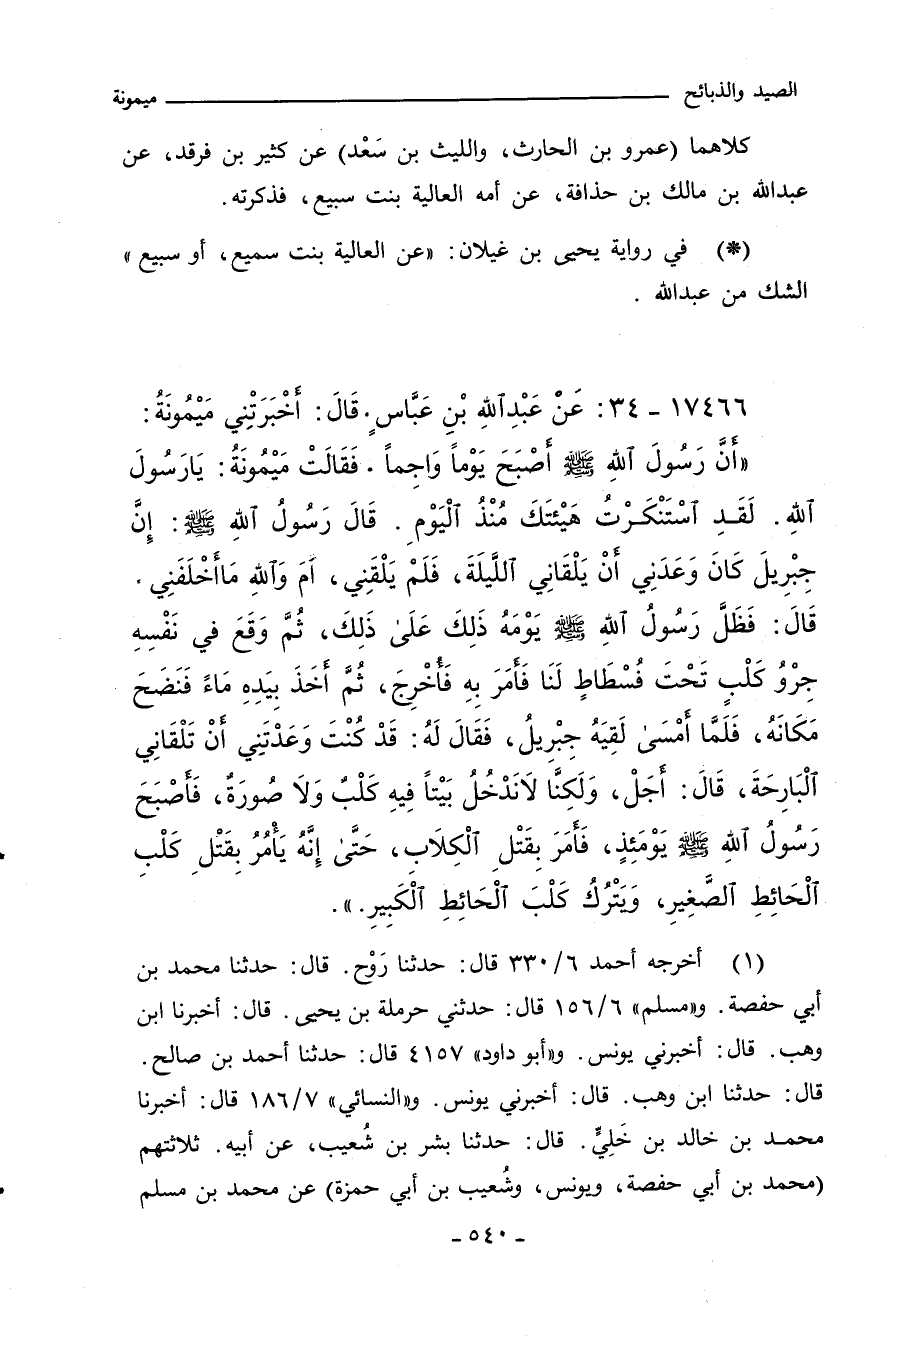 الصيد والذبائح ميمونة
كلاهما (عمرو بن الحارث، والليث بن سَعْد) عن كثير بن فرقد، عن
عبدالله بن مالك بن حذافة، عن أمه العالية بنت سبيع، فذكرته.
(*) في رواية يحيى بن غيلان: «عن العالية بنت سميع، أو سبيع»
الشك من عبدالله .
١٧٤٦٦ - ٣٤: عَنْ عَبْدِ ٱللهِ بْنِ عَبَّاسٍ. قَالَ: أَخْبَرَتْنِي مَيْمُونَةُ:
«أَنَّ رَسُولَ ٱللهِ ﷺ أَصْبَحَ يَوْماً وَاجِماً. فَقَالَتْ مَيْمُونَةُ: يَارَسُولَ
ٱللهِ. لَقَدِ ٱسْتَنْكَرْتُ هَيْئَتَكَ مُنْذُ ٱلْيَوْمِ. قَالَ رَسُولُ ٱللهِ ﷺ: إِنَّ
جِبْرِيلَ كَانَ وَعَدَنِي أَنْ يَلْقَانِي ٱللَّيْلَةَ، فَلَمْ يَلْقَنِي، أَمَ وَٱللهِ مَاأَخْلَفَنِي.
قَالَ: فَظَلَّ رَسُولُ ٱللهِ ﷺ يَوْمَهُ ذَلِكَ عَلَىٰ ذَلِكَ، ثُمَّ وَقَعَ فِي نَفْسِهِ
جِرْوُ كَلْبٍ تَحْتَ فُسْطَاطٍ لَنَا فَأَمَرَ بِهِ فَأُخْرِجَ، ثُمَّ أَخَذَ بِيَدِهِ مَاءً فَنَضَحَ
مَكَانَهُ، فَلَمَّا أَمْسَىٰ لَقِيَهُ جِبْرِيلُ، فَقَالَ لَهُ: قَدْ كُنْتَ وَعَدْتَنِي أَنْ تَلْقَانِي
ٱلْبَارِحَةَ، قَالَ: أَجَلْ، وَلَكِنَّا لَانَدْخُلُ بَيْتاً فِيهِ كَلْبٌ وَلَا صُورَةٌ، فَأَصْبَحَ
رَسُولُ ٱللهِ ﷺ يَوْمَئِذٍ، فَأَمَرَ بِقَتْلِ ٱلْكِلَابِ، حَتَّىٰ إِنَّهُ يَأْمُرُ بِقَتْلِ كَلْبِ
ٱلْحَائِطِ ٱلصَّغِيرِ، وَيَتْرُكُ كَلْبَ ٱلْحَائِطِ ٱلْكَبِيرِ.».
(١) أخرجه أحمد ٣٣٠/٦ قال: حدثنا رَوْح. قال: حدثنا محمد بن
أبي حفصة. و«مسلم» ١٥٦/٦ قال: حدثني حرملة بن يحيى. قال: أخبرنا ابن
وهب. قال: أخبرني يونس. و«أبو داود» ٤١٥٧ قال: حدثنا أحمد بن صالح.
قال: حدثنا ابن وهب. قال: أخبرني يونس. و«النسائي» ١٨٦/٧ قال: أخبرنا
محمد بن خالد بن خَلِيٍّ. قال: حدثنا بشر بن شُعيب، عن أبيه. ثلاثتهم
(محمد بن أبي حفصة، ويونس، وشُعيب بن أبي حمزة) عن محمد بن مسلم
- ٥٤٠ -